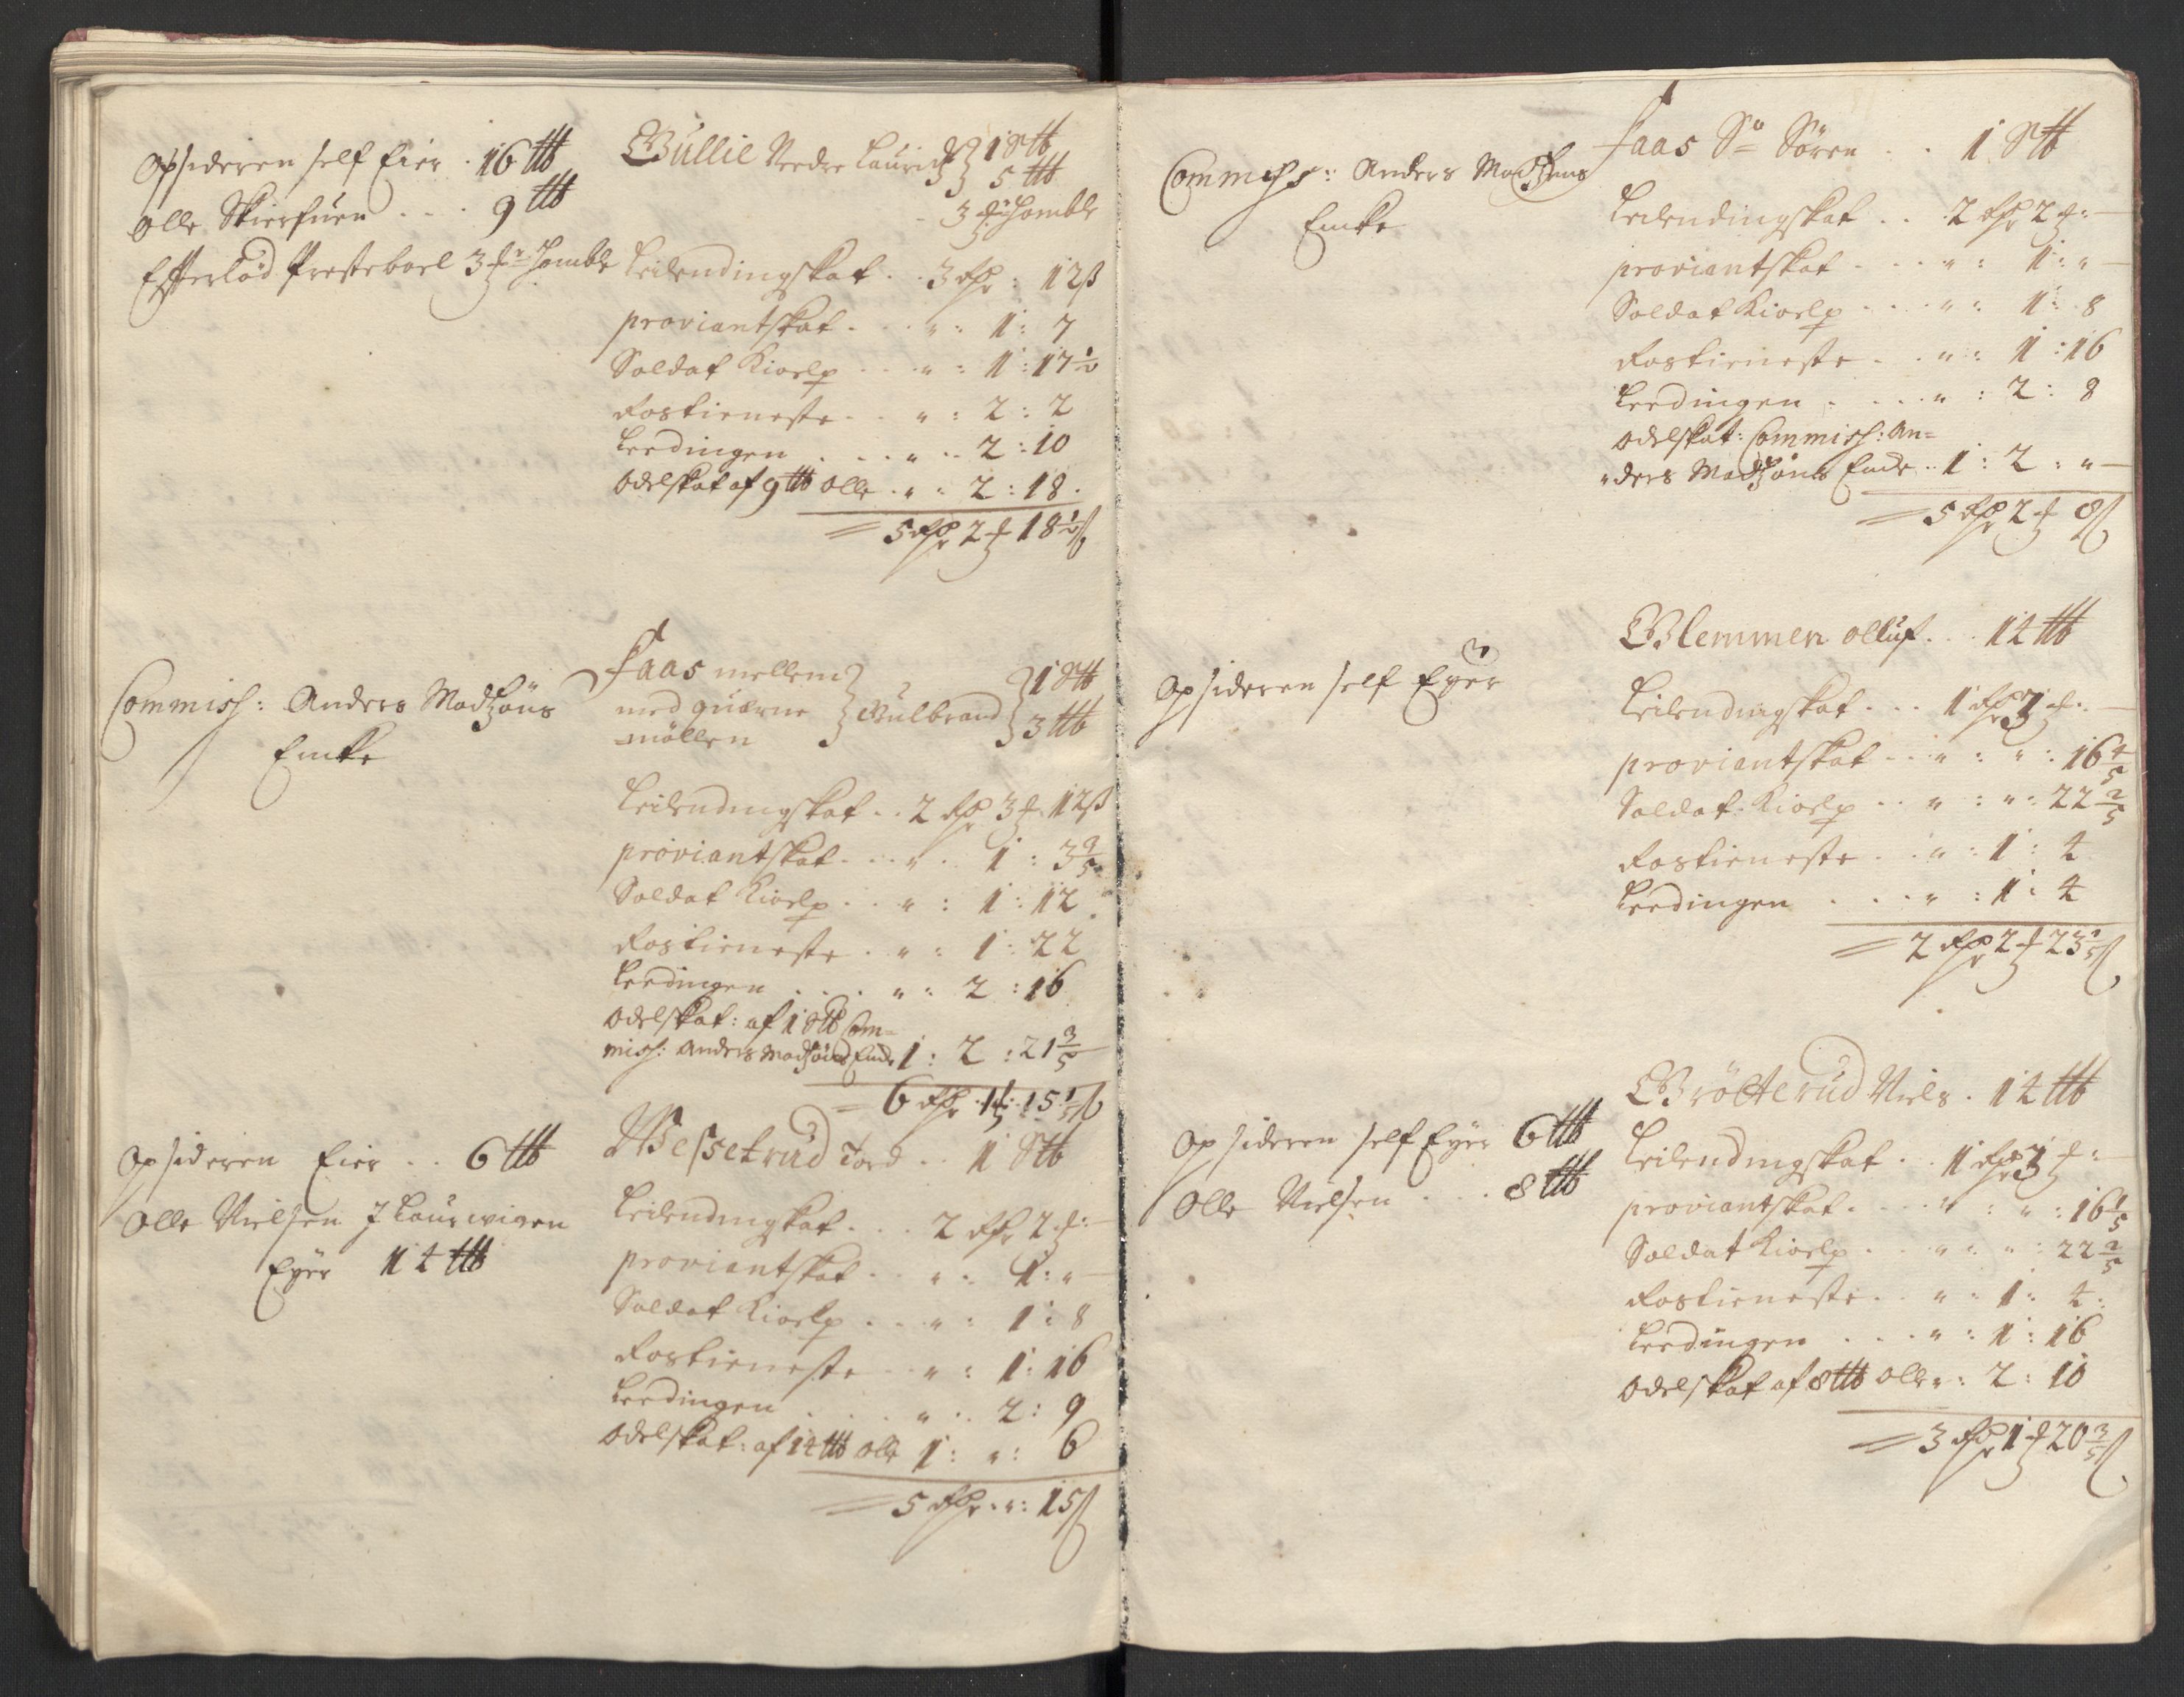 Opsideren self Eier . 16 ℔
Olle Skierfuen . . . 9 ℔
Efterlød Presteboel 3 fr: homble
Gullie Nedre Lauridtz 1 S℔
5 ℔
3 fr: homble
Leilendingskat . . 3 rdr : 12ß
proviantskat . . . " : 1 : 7
Soldat Kioelp . . . " : 1 : 17½
Rostieneste . . " : 2 : 2
Leedingen . . . " . . 2 : 10
Odelskat af 9 ℔ Olle . " : 2 : 18 .
= 5 rdr 2 f 18½ ß
Commiss: Anders Madtzøns
Encke
Faas mellem
med quærne
møllen
Gulbrand
1 S℔
3 ℔
Leilendingskat . . 2 rdr 3 f 12ß
proviantskat . . . " . 1 : 3 3/5
Soldat Kioelp . . " : 1 : 12
Rostieneste . " : 1 : 22
Leedingen . . . " : 2 : 16
Odelskat: af 1 S℔ Com=
miss: Anders Madsøns Encke 1 : 2 : 21 3/5
= 6 rdr 1 f 15 1/5 ß
Opsideren Eier . . 6 ℔
Olle Nielsen J Laurwigen
Eyer 14 ℔
Tord . . 1 S℔
Leilendingskat . . . 2 rdr 2 f : —
proviantskat . . " : 1 : " —
Soldat Kioelp . . " : 1 : 8
Rostieneste . " : 1 : 16
Leedingen . . . " . . 2 : 9
Odelskat: af 14 ℔ Olle 1 : " : 6
= 5 rdr : " : 15 ß
Commiss: Anders Madtzøns
Encke
Faas S: Sören . . 1 S℔
Leilendingskat . . 2 rdr 2 f : —
proviantskat . . . " : 1 : " —
Soldat Kioelp . . . " : 1 : 8
Rostieneste . . " : 1 : 16
Leedingen . . . . " : 2 : 8
Odelskat: Commiss: An=
"ders Madtzøns Encke . . 1 : 2 : " —
= 5 rdr 2 f 8 ß
Opsideren self Eyer
Glemmen Olluf . . . 14 ℔
Leilendingskat . . . 1 rdr 3 f : —
proviantskat . . " : " : 16 4/5
Soldat Kioelp . . " : " : 22 2/5
Rostieneste . . " : 1 : 4
Leedingen . . . " : 1 : 4
= 2 rdr 2 f 23 1/5 ß
Opsideren self Eyer 6 ℔
Olle Nielsen . . . 8 ℔
Niels . 14 ℔
Leilendingskat . . 1 rdr 3 f : —
proviantskat . . . . " : " : 16 1/5
Soldat Kioelp . . " : " : 22 2/5
Rostieneste . . " : 1 : 4 :
Leedingen . . . " : 1 : 16
Odelskat af 8 ℔ Olle " : 2 : 10
= 3 rdr 1 f 20 3/5 ß